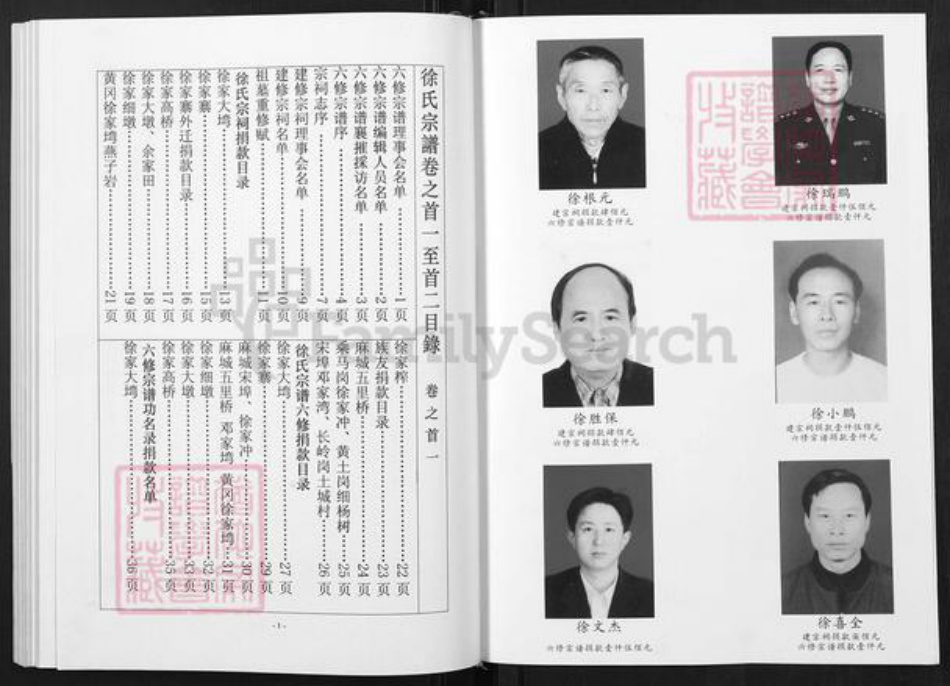 徐氏宗譜卷之首一至首二目錄 卷之首一
六修宗谱理事会名单……1页
六修宗谱编辑人员名单……2页
六修宗谱襄摧採访名单……3页
六修宗谱序……4页
宗祠志序……7页
建修宗祠理事会名单……9页
建修宗祠名单……10页
祖墓重修赋……11页
徐氏宗祠捐款目录
徐家大塆……13页
徐家寨……15页
徐家寨外迁捐款目录……16页
徐家高桥……17页
徐家大墩、余家田……18页
徐家细墩……19页
黄冈徐家塆燕子岩……21页
徐家榨……22页
族友捐款目录……23页
麻城五里桥……24页
乘马岗徐家冲、黄土岗细杨树……25页
宋埠邓家湾、长岭岗土城村……26页
徐氏宗谱六修捐款目录
徐家大塆……27页
徐家寨……29页
麻城宋埠、徐家冲……30页
麻城五里桥 邓家塆 黄冈徐家塆……31页
徐家细墩……32页
徐家大墩……33页
徐家高桥……35页
六修宗谱功名录捐款名单
徐家大塆……36页
-1-
徐根元
建宗祠捐款肆佰元
六修宗谱捐款壹仟元
徐瑞鹏
建宗祠捐款壹仟伍佰元
六修宗谱捐款壹仟元
徐胜保
建宗祠捐款肆佰元
六修宗谱捐款壹仟元
徐小鹏
建宗祠捐款壹仟伍佰元
六修宗谱捐款壹仟元
徐文杰
六修宗谱捐款壹仟伍佰元
徐喜全
建宗祠捐款柒佰元
六修宗谱捐款壹仟元
FamilySearch